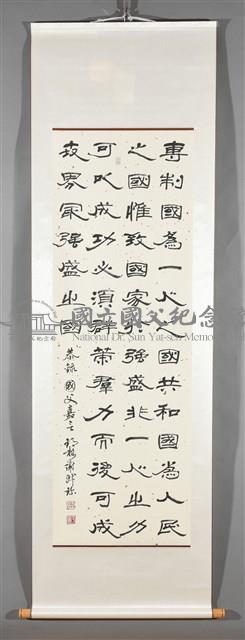 專制國為一人之國共和國為人民
之國惟致國家於強盛非一人之力
可以成功必須群策群力而後可成
世界最強盛之國
恭錄 國父嘉言
國立國父紀念
National Dr. Sun Yat-sen Memo